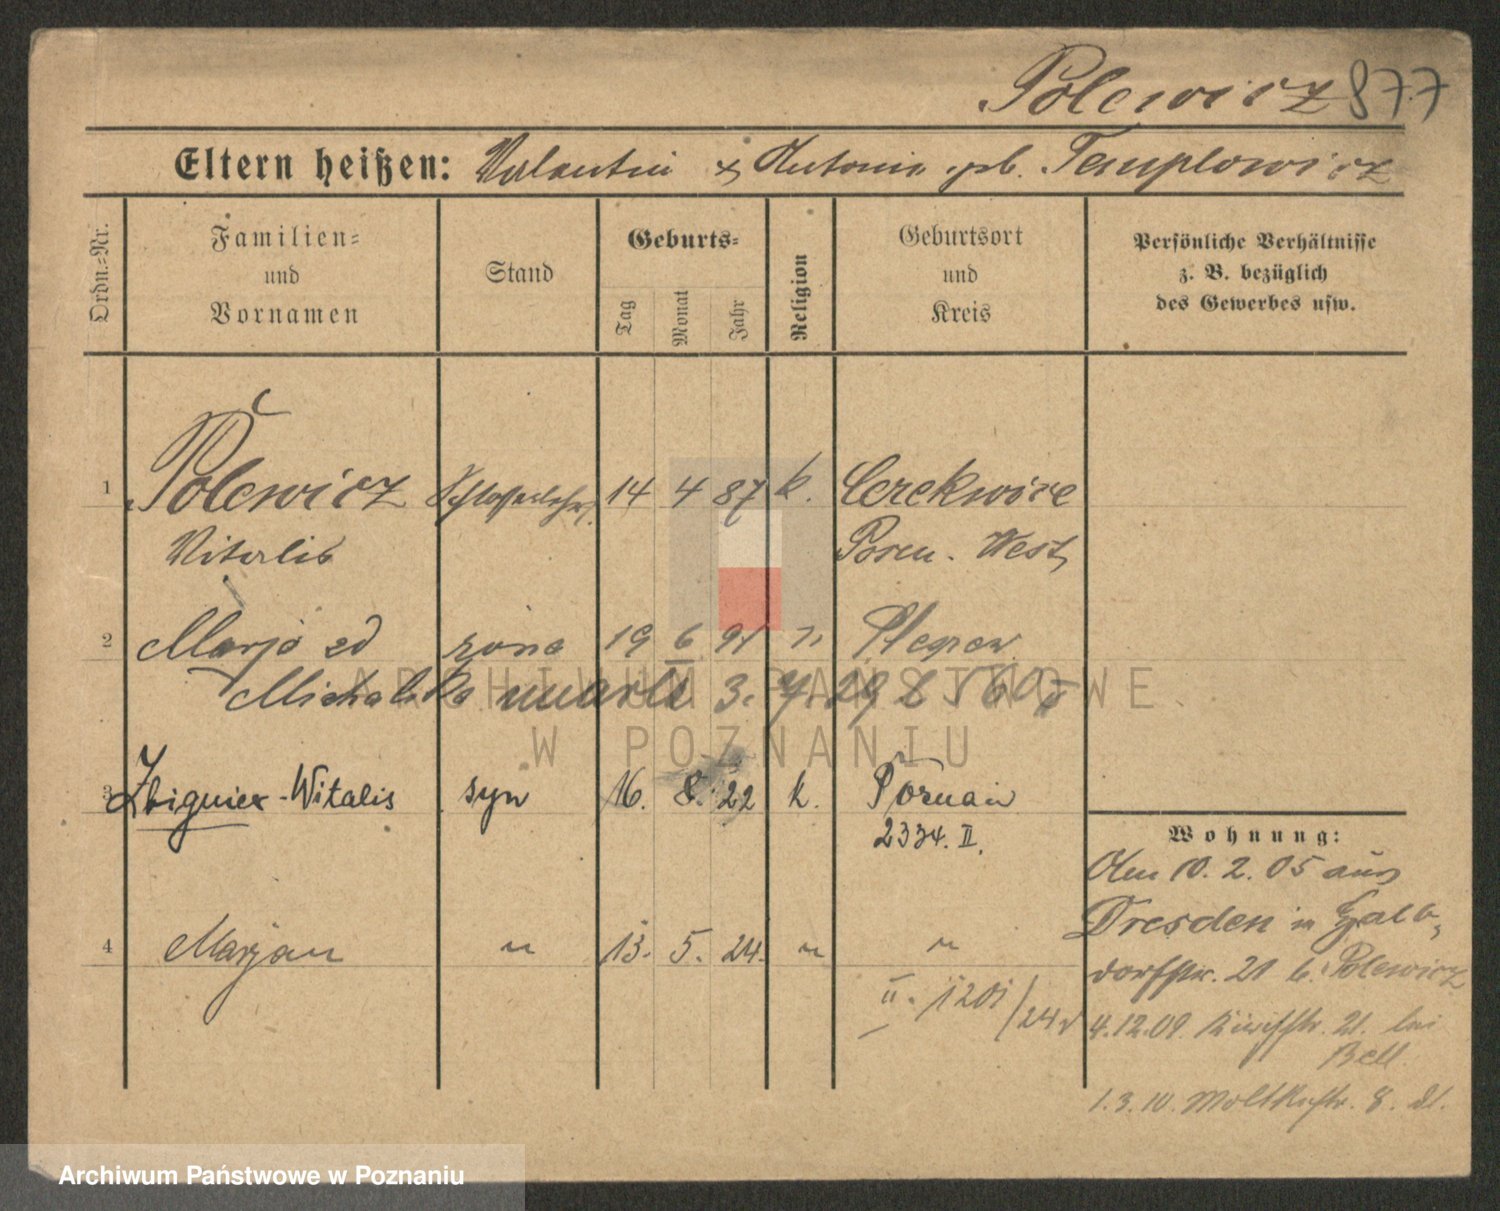 Polewicz 877
Eltern heißen: Valentin & Antonie geb. Templowicz
Ordn.=Nr.
Familien=
und
Vornamen
Stand
Geburts=
Tag
Monat
Jahr
Religion
Geburtsort
und
Kreis
Persönliche Verhältnisse
z. B. bezüglich
des Gewerbes usw.
1 Polewicz Schlosserlehrl. 14 4 87 k. Cerekwice
Vitalis Posen. West
2 Marja zd żona 19 6 91 "
Michalska umarła 3.
3 Zbigniew-Witalis syn 16. 8. 22 k. Poznań
2334. II.
4 Marjan " 13. 5. 24. " "
II. 1201/24
Wohnung:
Am 10. 2. 05 aus
Dresden n
dorfstr. 21 b. Polewicz
4.12.09. 21. bei
Bell.
1.3.10. Moltkestr. 8.
ARCHIWUM PAŃSTWOWE
W POZNANIU
Archiwum Państwowe w Poznaniu